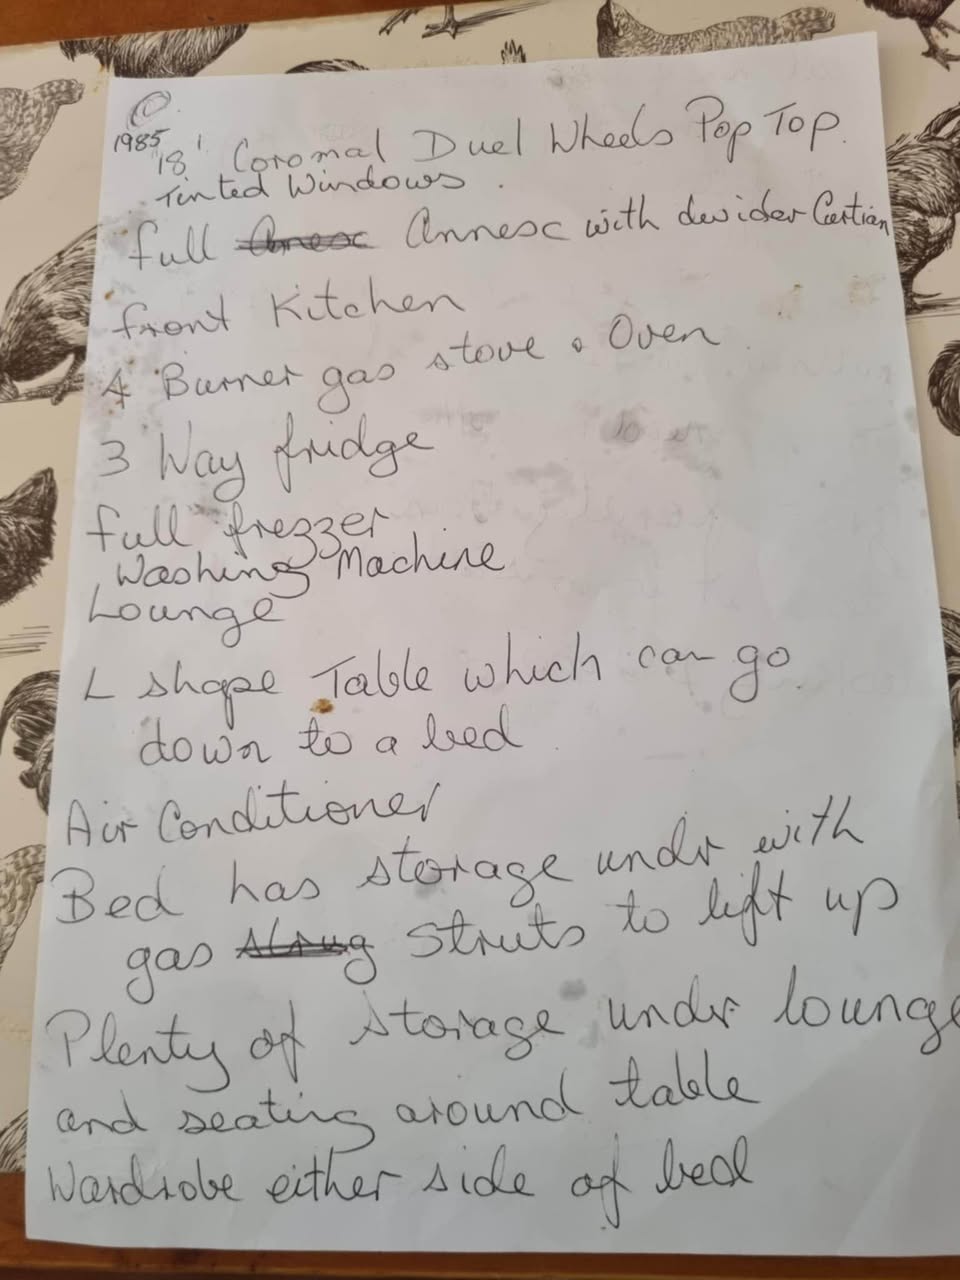 1985 18' Coromal Duel Wheels Pop Top.
Tinted Windows.
full Anesc Annesc with devider Curtian
front Kitchen
4 Burner gas stove & Oven
3 Way fridge
full frezzer
Washing Machine
Lounge
L shape Table which can go
down to a bed
Air Conditioner
Bed has storage under with
gas strug struts to lift up
Plenty of storage under lounge
and seating around table
Wardrobe either side of bed